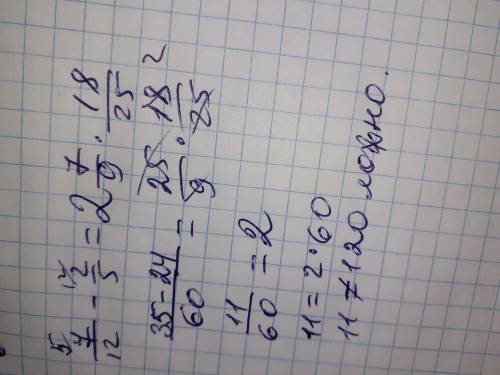 5 7/12 - 12 2/5 = 2 7/9 · 18/25
35-24/60 = 25/9 · 18 2/25
11/60 = 2
11 = 2·60
11 ≠ 120 ложно.